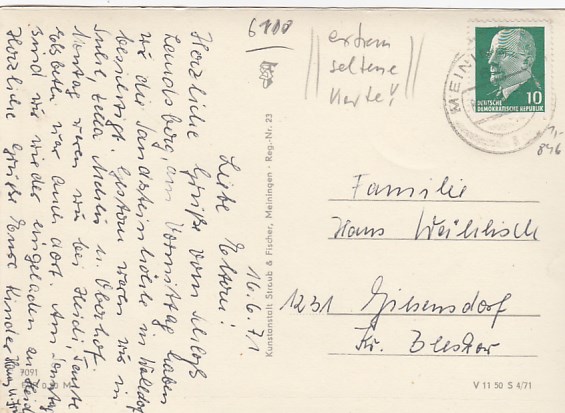 16.6.71
Liebe Eltern!
Herzliche Grüße vom Schloß
Landsberg, am Vormittag haben
wir die Sandsteinhöhle in Walldorf
besichtigt. Gestern waren wir in
Suhl, Zella Mehlis u. Oberhof.
Montag waren wir bei Heidi, Tante
war auch dort. Am
sind wir wieder eingeladen
Herzliche Grüße Eure Kinder
7091
0,20 M
Kunstanstalt Straub & Fischer, Meiningen · Reg.-Nr. 23
6100
extrem
seltene
Karte!
MEIN
DEUTSCHE
DEMOKRATISCHE REPUBLIK
10
1,-
846
Familie
Hans
1231 Giesensdorf
Kr. Beeskow
V 11 50 S 4/71